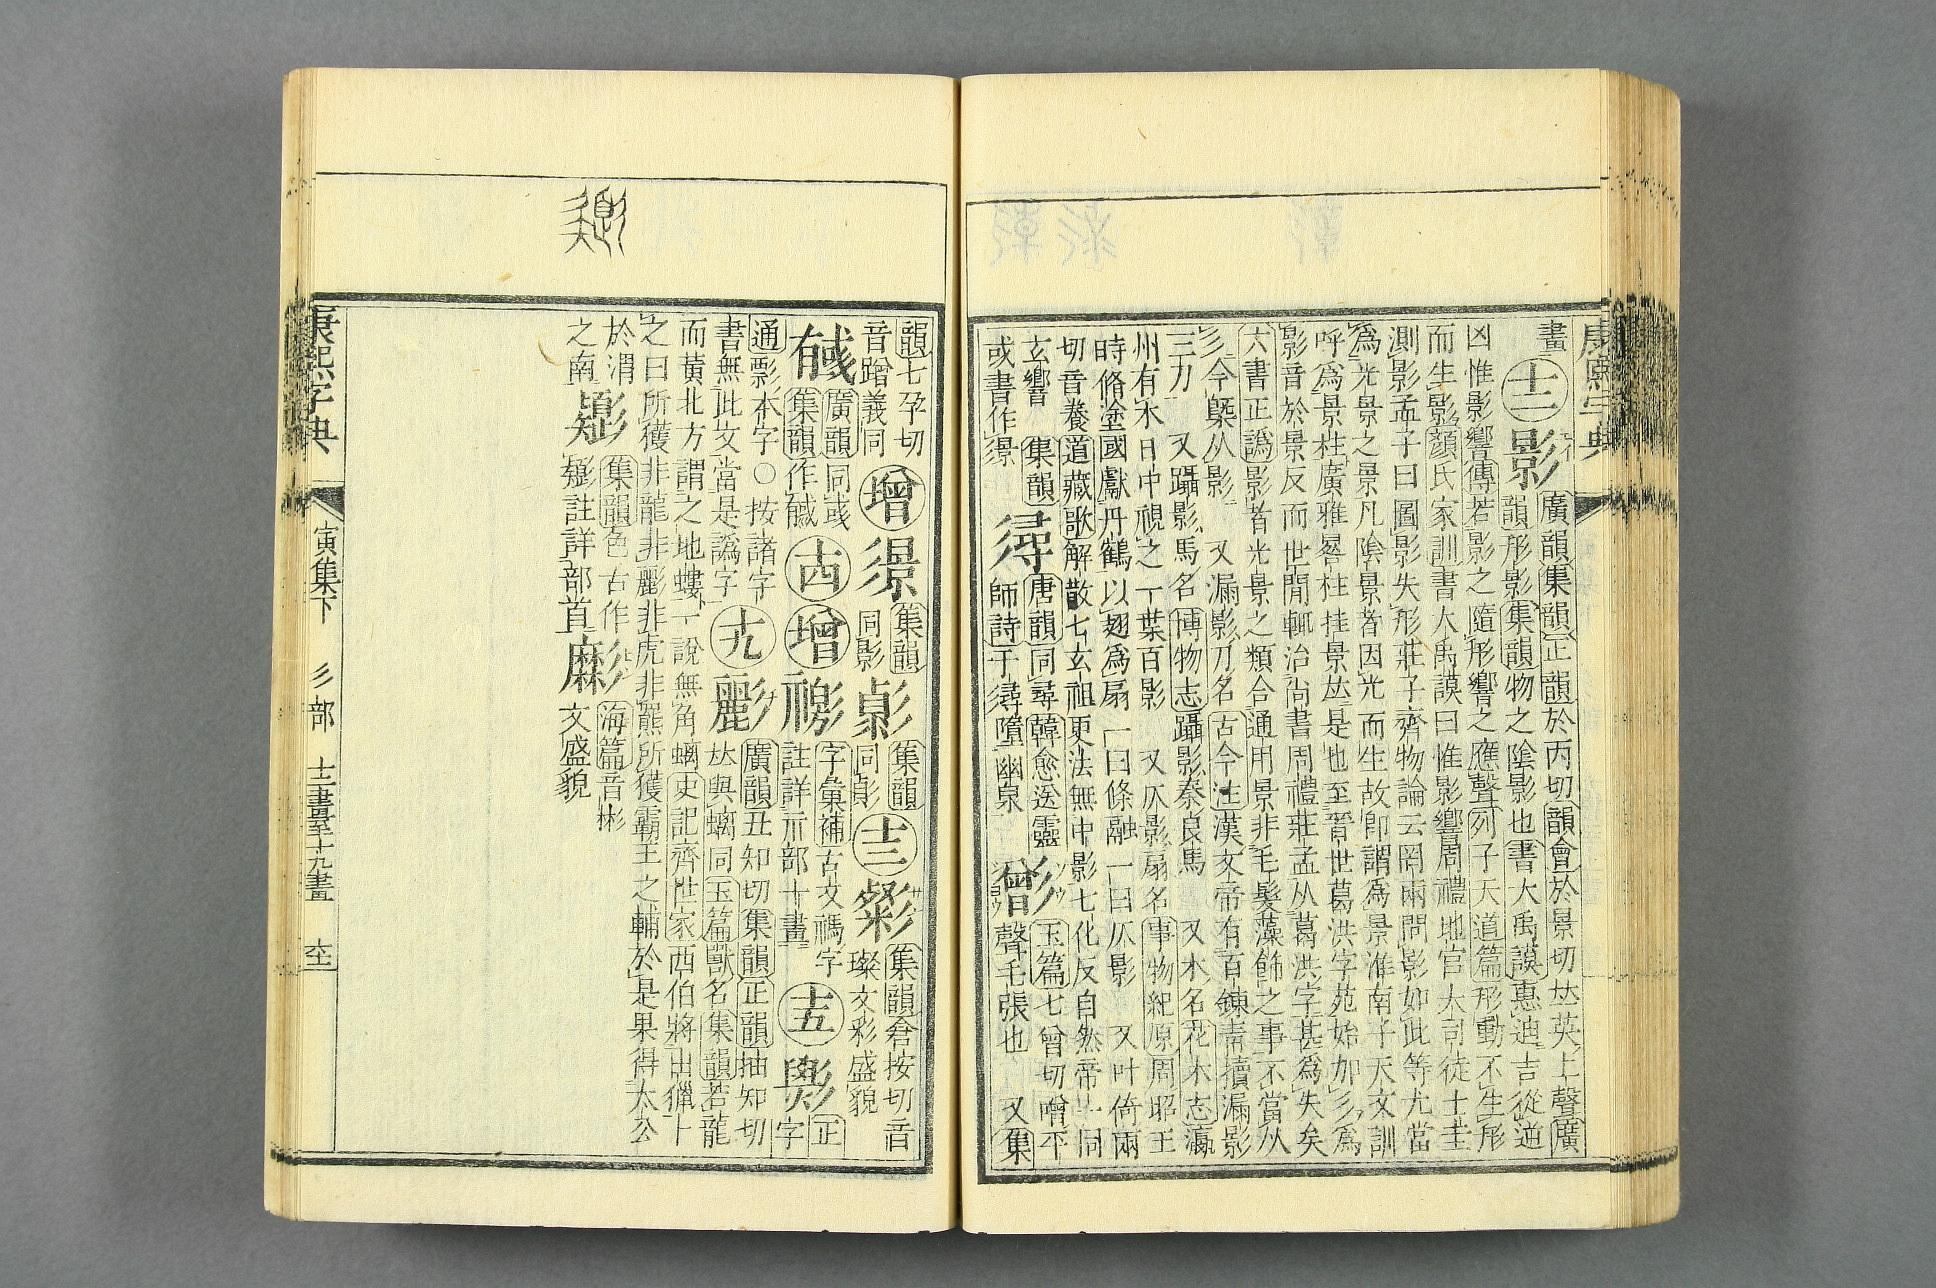 畫
十二 影
廣韻集韻正韻於丙切韻會於景切𠀤英上聲廣
韻形影集韻物之陰影也書大禹謨惠迪吉從逆
凶惟影響傳若影之隨形響之應聲列子天道篇形動不生形
而生影顏氏家訓書大禹謨曰惟影響周禮地官大司徒土圭
測影孟子曰圖影失形莊子齊物論云罔兩問影如此等尤當
爲光景之景凡陰景者因光而生故卽謂爲景淮南子天文訓
呼爲景柱廣雅晷柱挂景𠀤是也至晉世葛洪字苑始加彡爲
影音於景反而世閒輒治尚書周禮莊孟从葛洪字甚爲失矣
六書正譌影者光景之類合通用景非毛髮藻飾之事不當从
彡今槩从影 又漏影刀名古今注漢文帝有百鍊靑犢漏影
三刀 又躡影馬名博物志躡影秦良馬 又木名花木志瀛
州有木日中視之一葉百影 又仄影扇名事物紀原周昭王
時脩塗國獻丹鵲以翅爲扇一曰條融一曰仄影 又叶倚兩
切音養道藏歌解散七玄祖更法無中影七化反自然帝一同
玄響 集韻
或書作㬌
唐韻同尋韓愈送靈
師詩于㝷墮幽泉
玉篇七曾切噌平
聲毛張也 又集
韻七孕切
音蹭義同
增
集韻
同影
集韻
同
十三
集韻倉按切音
璨文彩盛貌
彧
廣韻同或
集韻作
十四 增
字彙補古文禡字
註詳示部十畫
十五
正字
通彲本字○按諸字
書無此文當是譌字
十九 彲
廣韻丑知切集韻正韻抽知切
𠀤與螭同玉篇獸名集韻若龍
而黃北方謂之地螻一說無角螭史記齊世家西伯將出獵卜
之曰所獲非龍非彲非虎非熊所獲霸王之輔於是果得太公
於渭
之南
集韻色古作
註詳部首
海篇音彬
文盛貌
康熙字典 寅集下 彡部 十二畫至十九畫
康熙字典